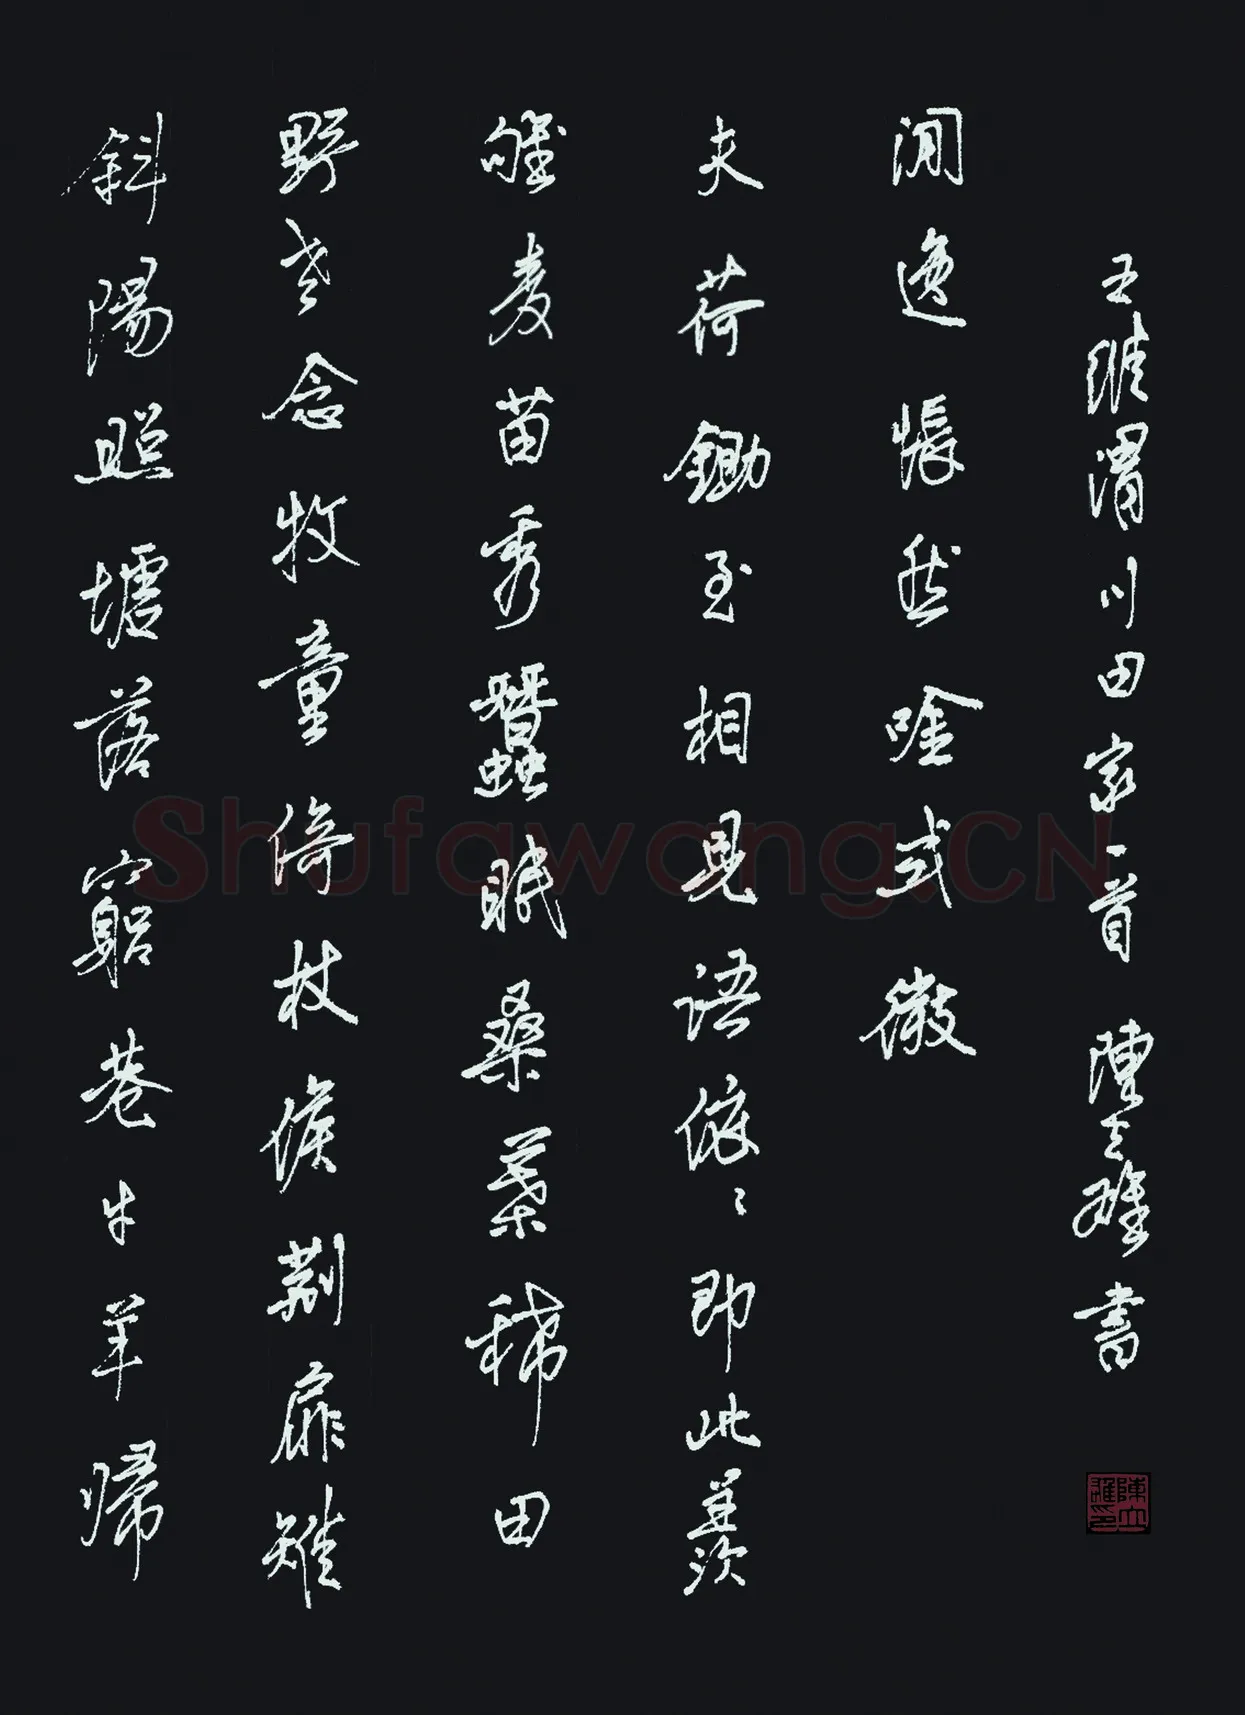 斜陽照墟落窮巷牛羊歸
野老念牧童倚杖候荆扉雉
雊麥苗秀蠶眠桑葉稀田
夫荷鋤至相見語依々即此羨
閒逸悵然唫式微
王維渭川田家一首 陳立雄書
陳立雄印
Shufawang.CN